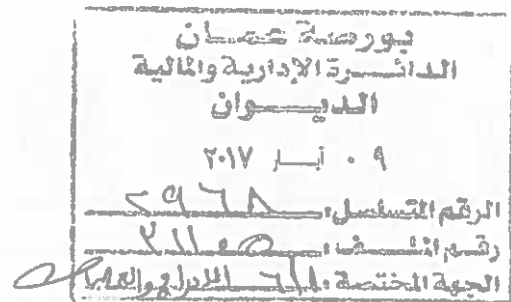 بورصة عمان
الدائرة الإدارية والمالية
الديوان
٠٩ أيار ٢٠١٧
الرقم المتسلسل: ٢٩٦٨
رقم الملف:
الجهة المختصة: الادراج والعمليات